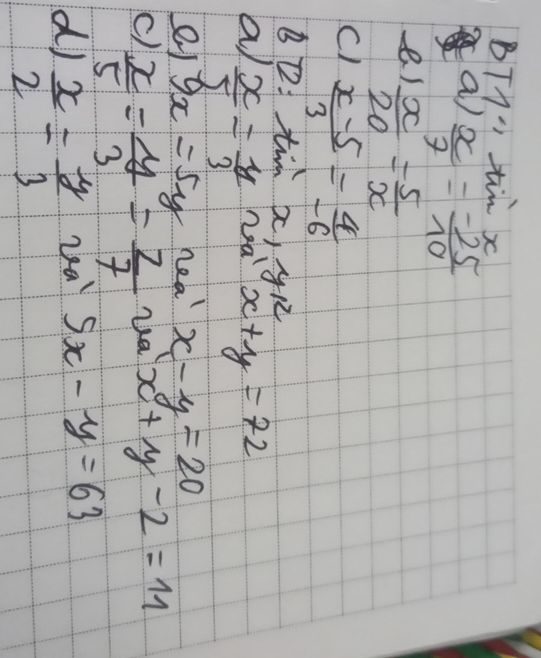 BT1: tìm x
a) x/7 = -25/10
b) x/20 = 5/x
c) x-5/3 = 4/-6
B2: tìm x, y, z
a) x/5 = y/3 và x+y = 72
b) 9x = 5y và x-y = 20
c) x/5 = y/3 = z/7 và x+y-2 = 11
d) x/2 = y/3 và 5x - y = 63